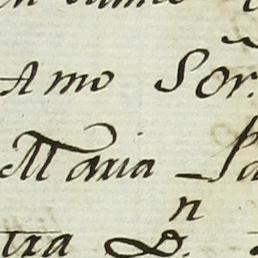 Amo Sor.
Maria Pa
tra D.n